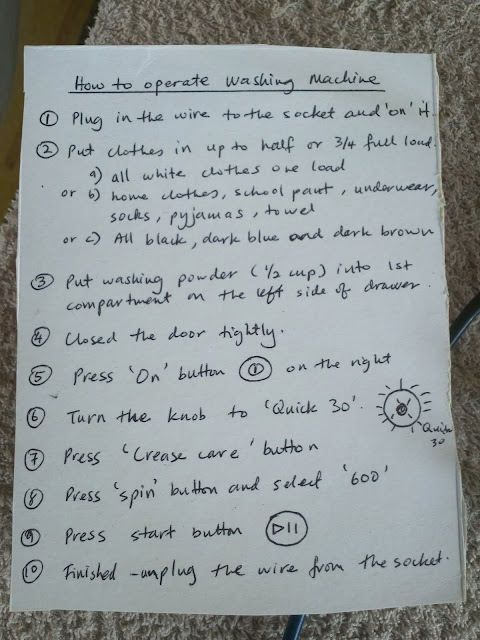 How to operate Washing Machine
① Plug in the wire to the socket and 'on' it.
② Put clothes in up to half or 3/4 full load.
a) all white clothes one load
or b) home clothes, school pant, underwear,
socks, pyjamas, towel
or c) All black, dark blue and dark brown
③ Put washing powder (1/2 cup) into 1st
compartment on the left side of drawer.
④ Closed the door tightly.
⑤ Press 'On' button on the right
⑥ Turn the knob to 'Quick 30'.
Quick
30
⑦ Press 'Crease care' button
⑧ Press 'spin' button and select '600'
⑨ Press start button
⑩ Finished - unplug the wire from the socket.